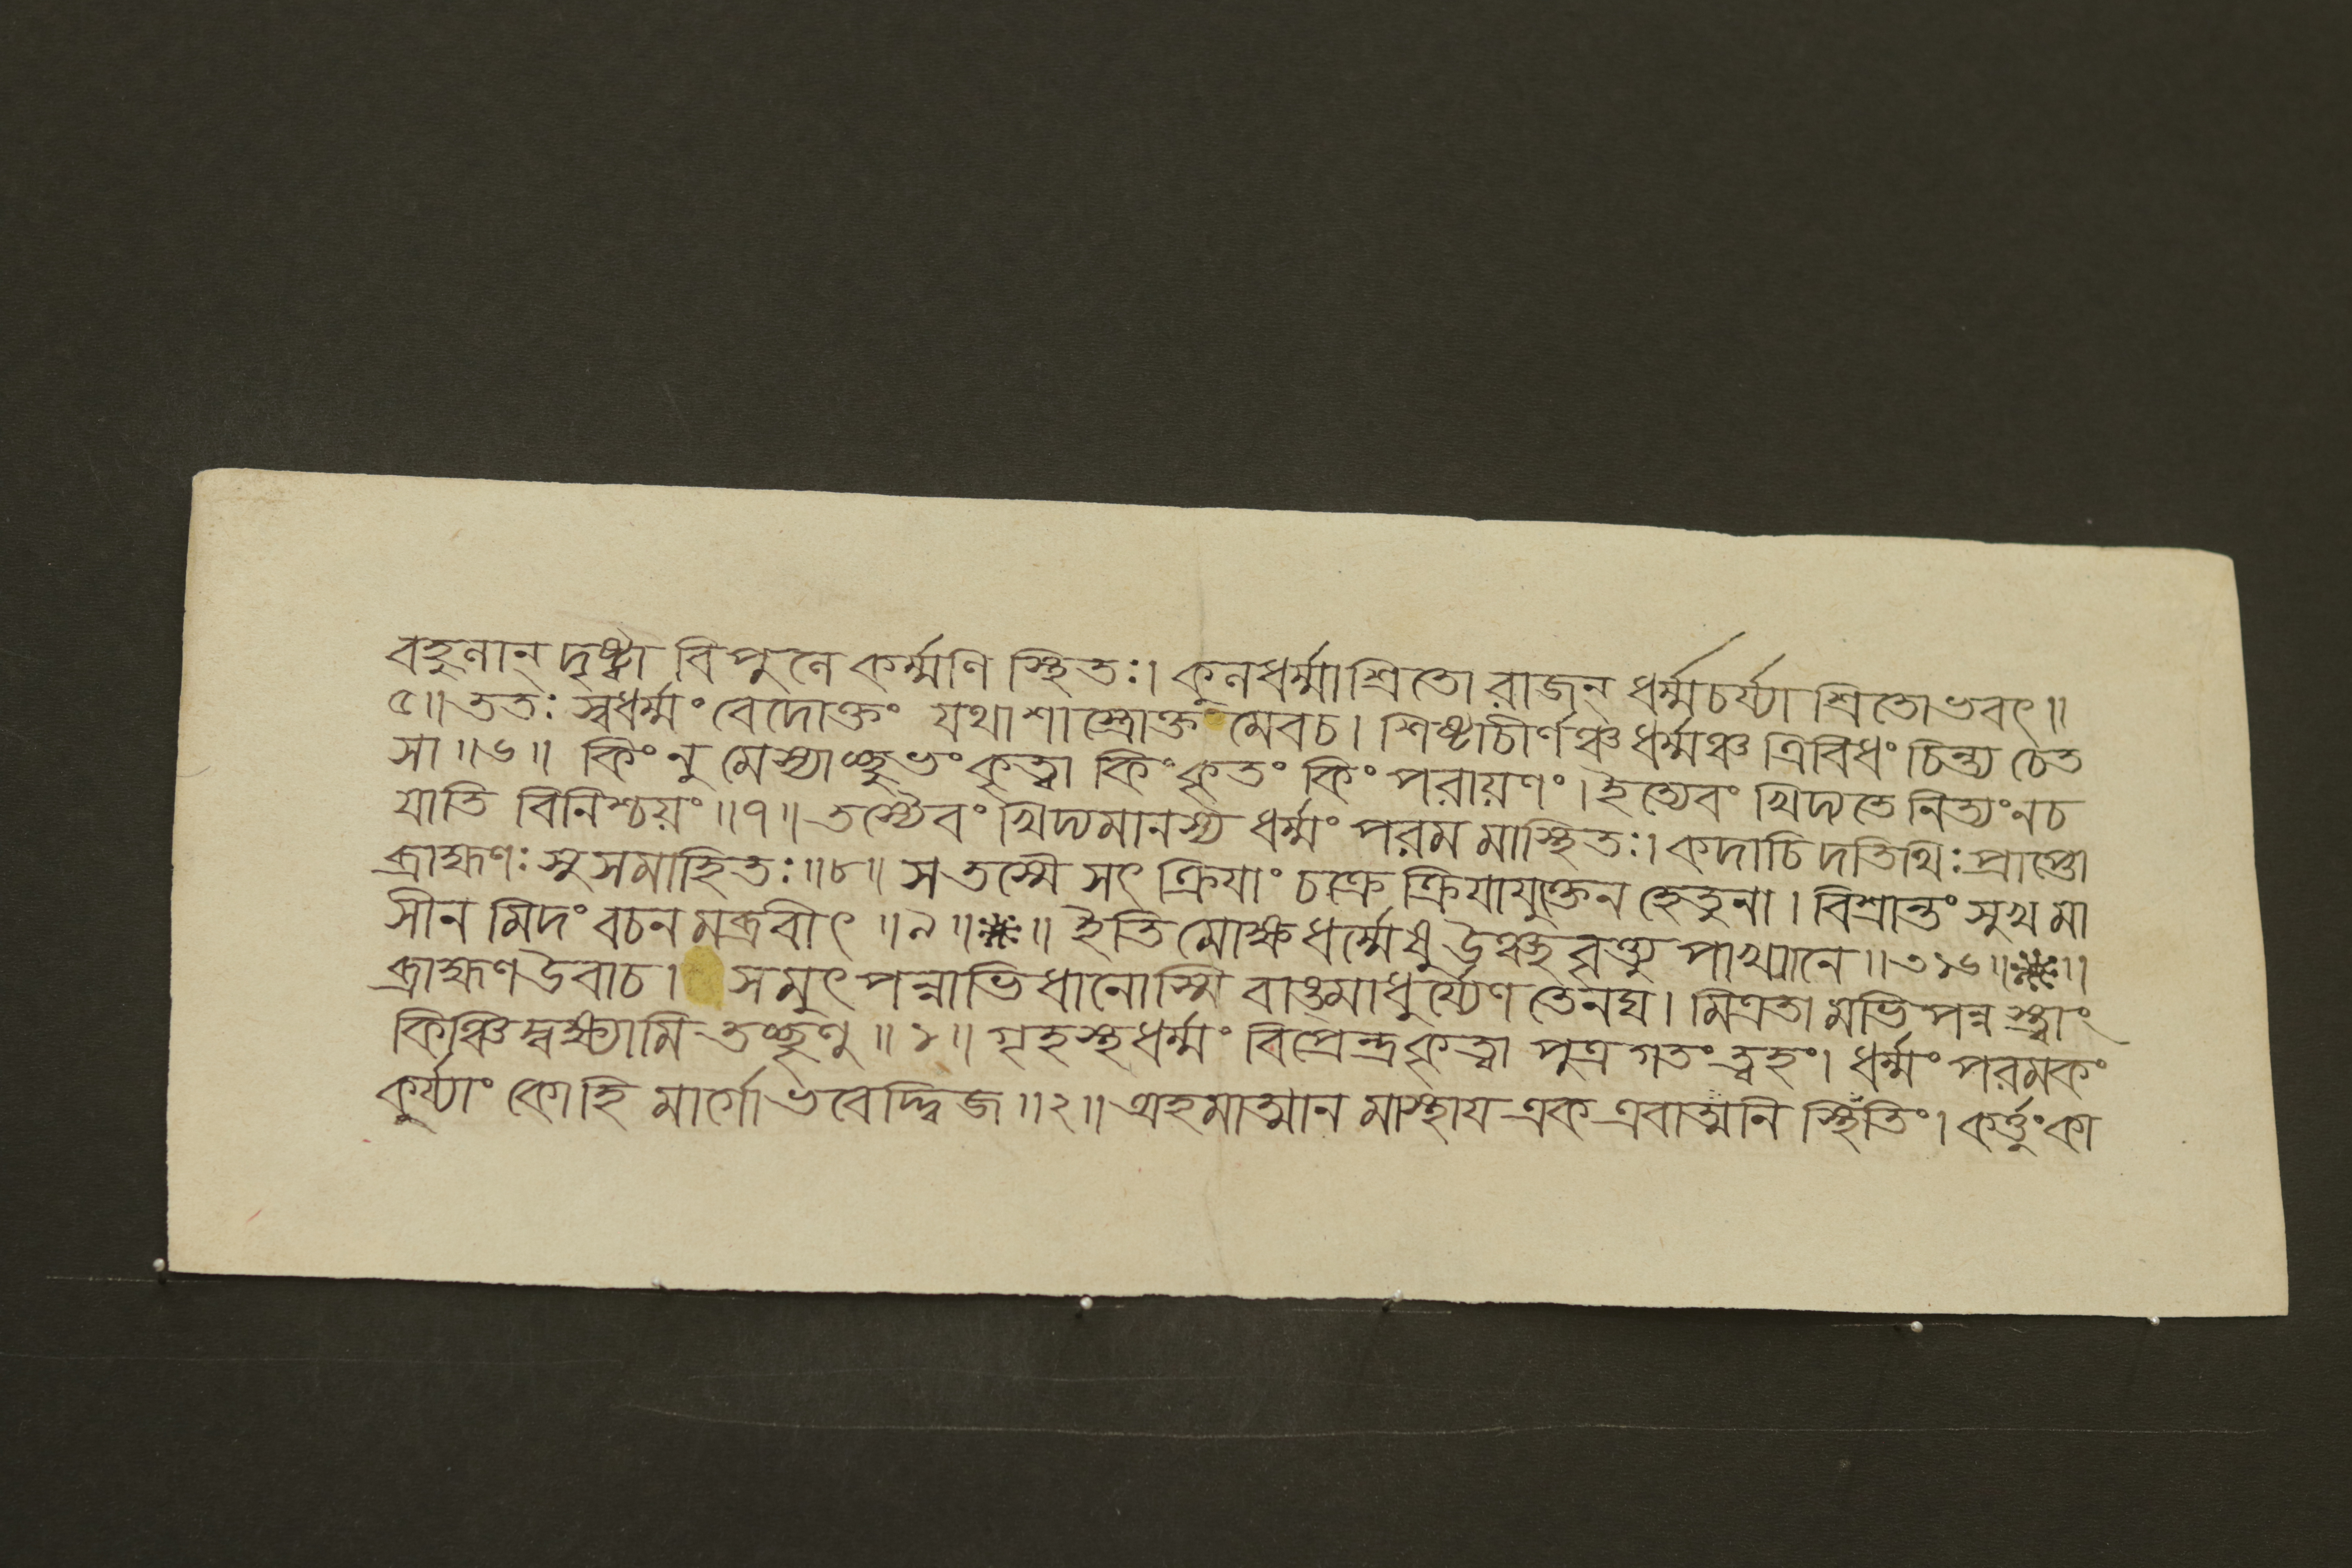 বহুলান্ দৃষ্ট্বা বিপুলে কর্ম্মণি স্থিতঃ। কুলধর্ম্মাশ্রিতো রাজন্ ধর্ম্মচর্য্যাশ্রিতোভবৎ॥
৫॥ ততঃ স্বধর্ম্মং বেদোক্তং যথাশাস্ত্রোক্তমেবচ। শিষ্টাচীর্ণঞ্চধর্ম্মঞ্চ ত্রিবিধং চিন্ত্য চেত
সা॥৬॥ কিংনু মেস্যাচ্ছুভংকৃত্বা কিংকৃতং কিং পরায়ণং। ইত্যেবং খিদ্যতে নিত্যংনচ
যাতি বিনিশ্চয়ং॥৭॥ তস্যৈবং খিদ্যমানস্য ধর্ম্মং পরমমাস্থিতঃ। কদাচিদতিথিঃ প্রাপ্তো
ব্রাহ্মণঃ সুসমাহিতঃ॥৮॥ সতস্মৈ সৎক্রিয়াং চক্রে ক্রিয়াযুক্তেন হেতুনা। বিশ্রান্তং সুখমা
সীনমিদং বচনমব্রবীৎ॥৯॥❈॥ ইতি মোক্ষধর্ম্মেষু উঞ্ছবৃত্ত্যুপাখ্যানে॥৩১৬॥❈॥
ব্রাহ্মণউবাচ। সমুৎপন্নাভিধানোস্মি বাঙ্মাধুর্য্যেণ তেনঘ। মিত্রতামভিপন্নস্ত্বাং
কিঞ্চিদ্বক্ষ্যামি তচ্ছৃণু॥১॥ গৃহস্থধর্ম্মং বিপ্রেন্দ্রকৃত্বা পুত্রগতংত্বহং। ধর্ম্মং পরমকং
কুর্য্যাং কোহি মার্গো ভবেদ্দ্বিজ॥২॥ অহমাত্মানমাস্থায একএবাত্মনি স্থিতিং। কর্ত্তুংকা